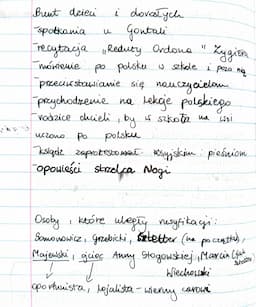 Bunt dzieci i dorosłych
-spotkania u Gontali
-recytacja „Reduty Ordona" Zygiera
-mówienie po polsku w szkole i poza nią
-przeciwstawianie się nauczycielom
-przychodzenie na lekcje polskiego
-rodzice chcieli, by w szkole na wsi
uczono po polsku
-ksiądz zaprotestował rosyjskim pieśniom
-opowieści strzelca Nogi
Osoby, które uległy rusyfikacji:
Somonowicz, Grzebicki, (na początku),
Majewski, ojciec Anny Stogowskiej, Marcin
Wiechowski
oportunista, lojalista - wierny carowi